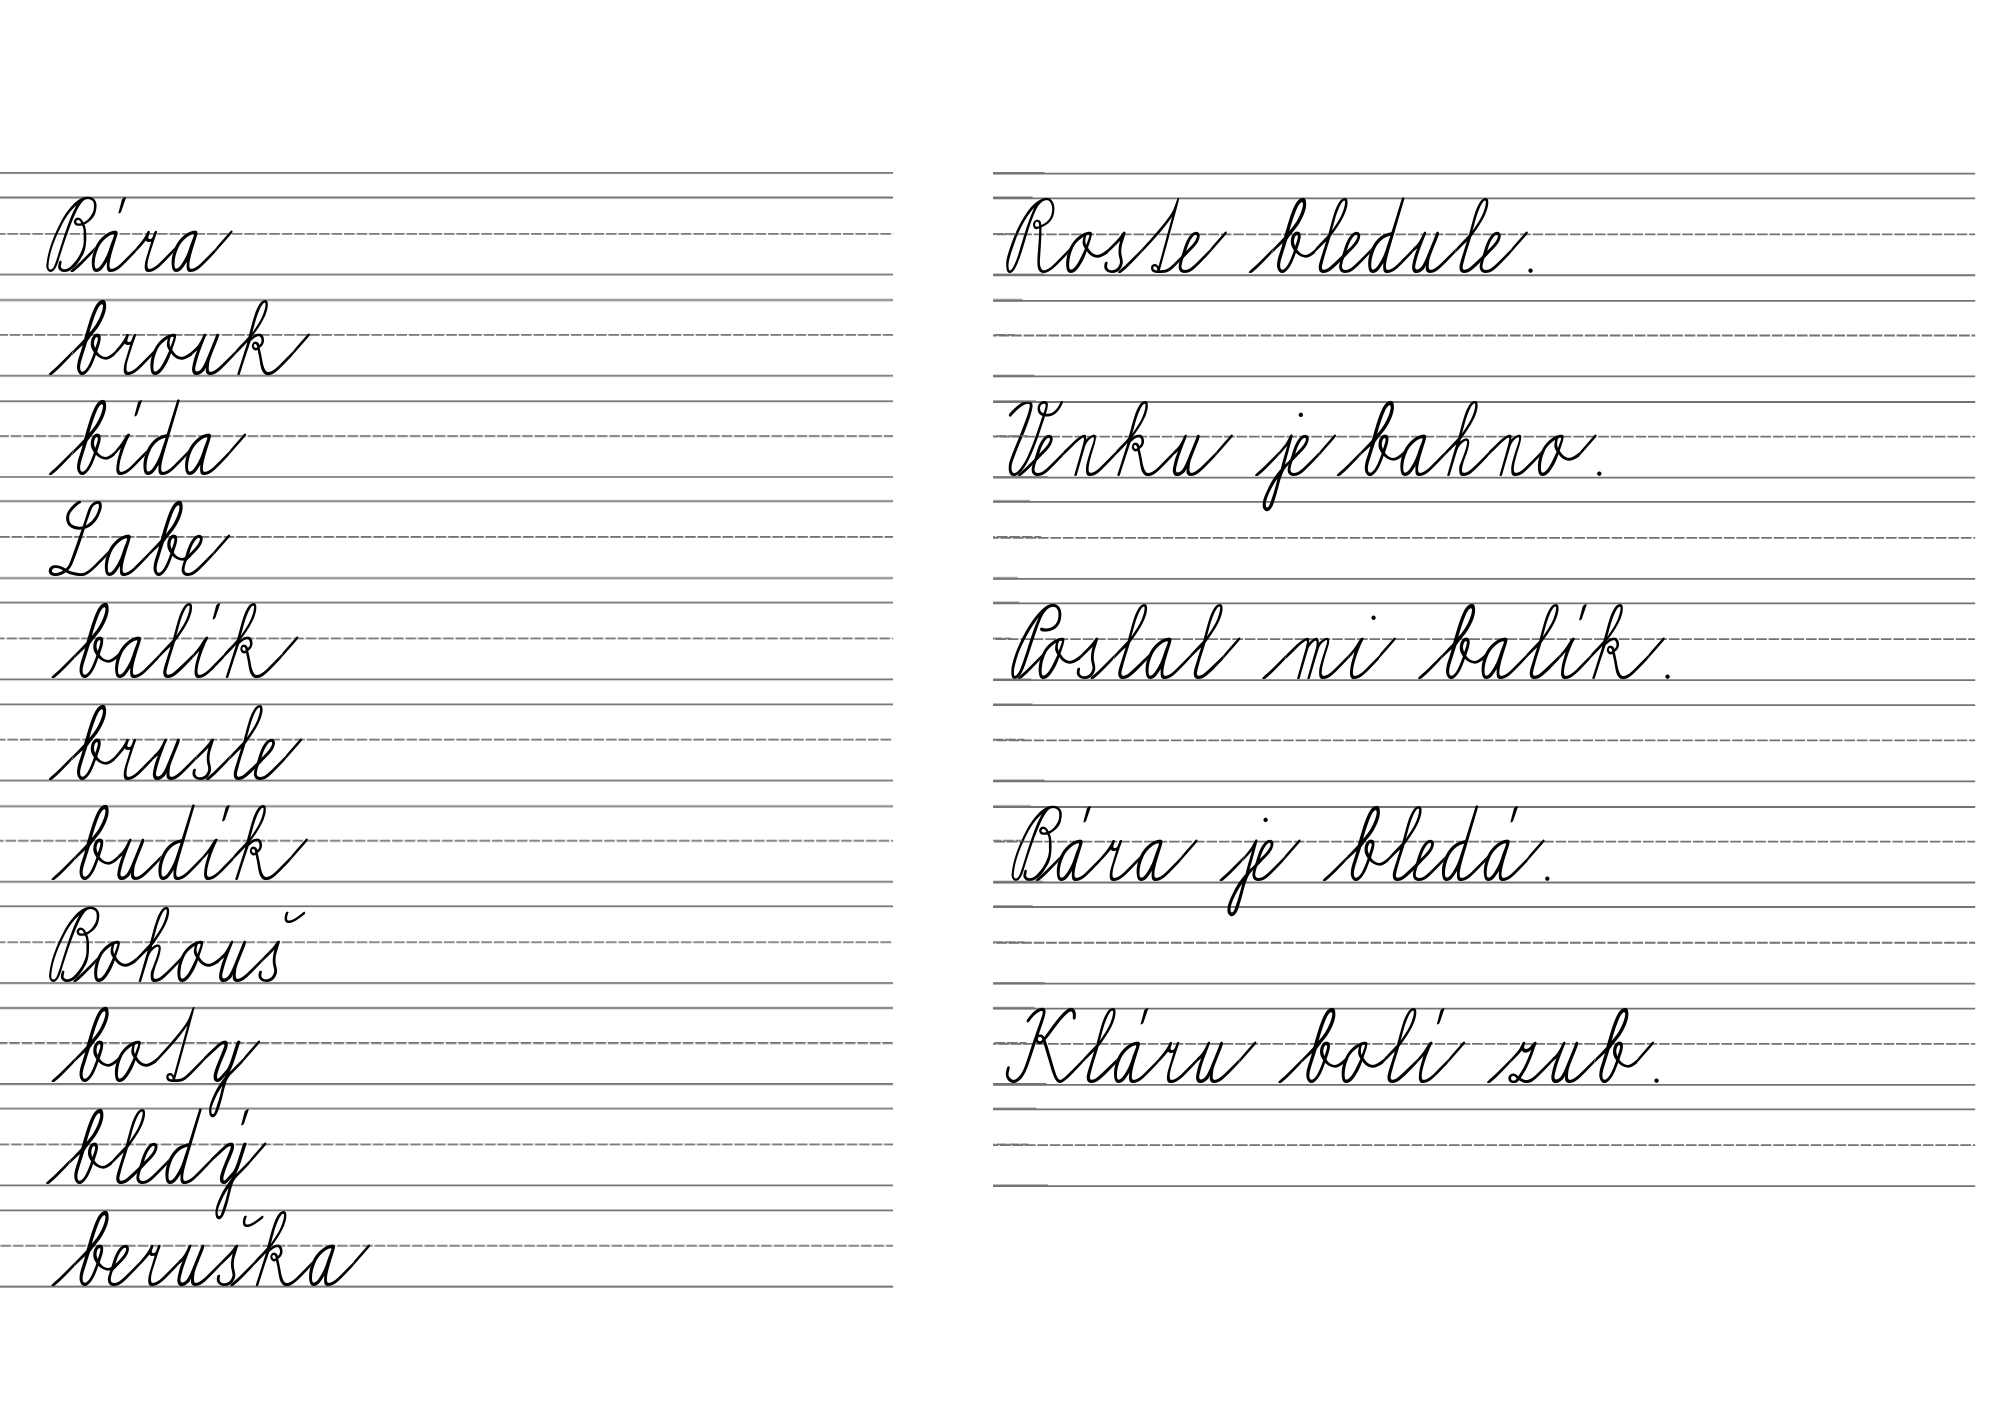 Bára
brouk
bída
Labe
balík
brusle
budík
Bohouš
boty
bledý
beruška
Roste bledule.
Venku je bahno.
Poslal mi balík.
Bára je bledá.
Kláru bolí zub.